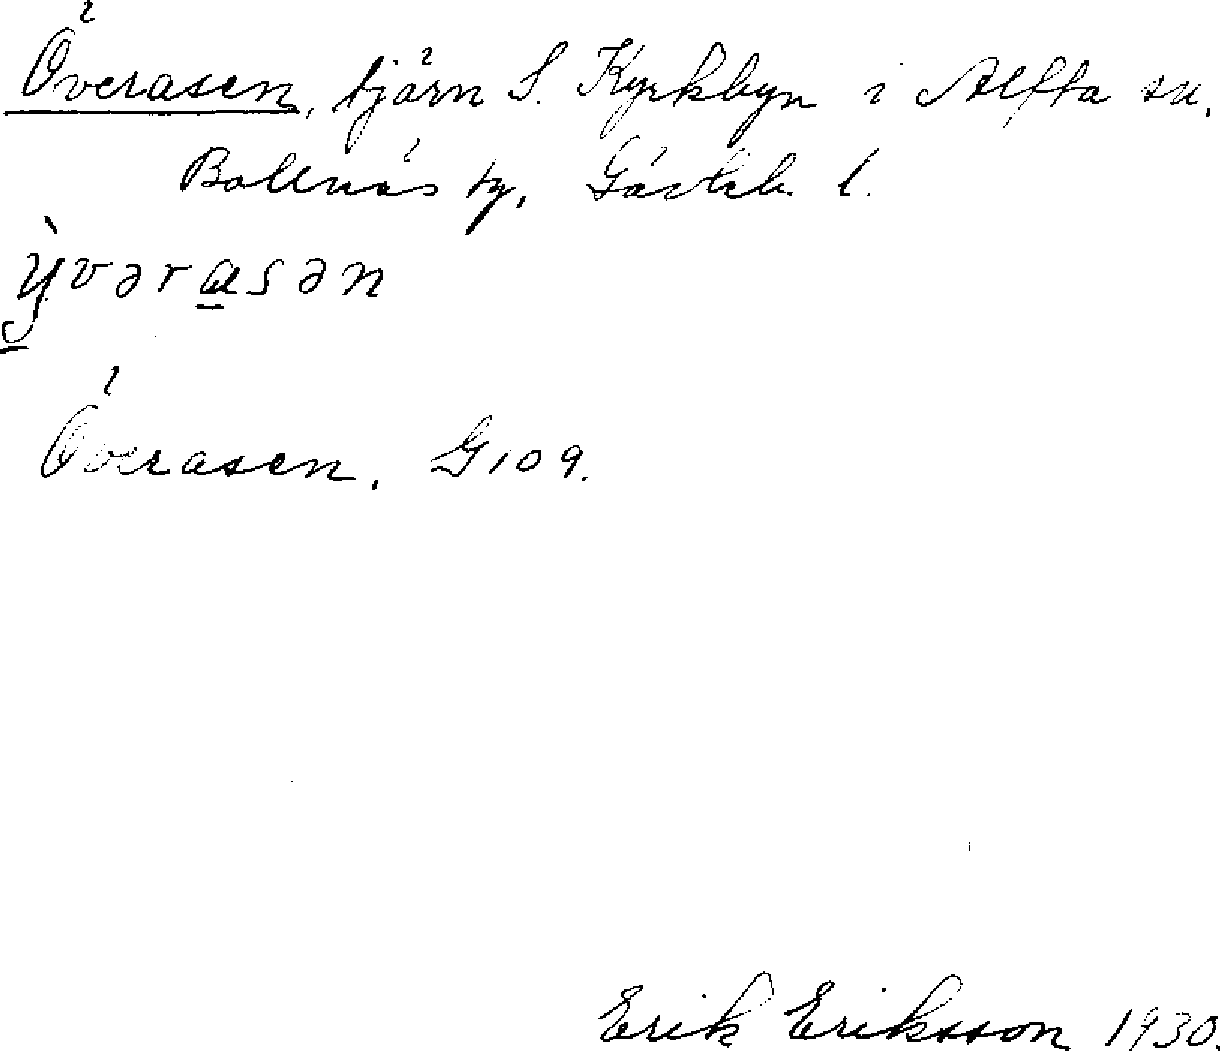 Överasen, tjärn S. Kyrkbyn i Alfta sn.
Bollnäs tg, Gävleb. l.
ỳvərasən
Överasen. G109.
Erik Eriksson 1930.